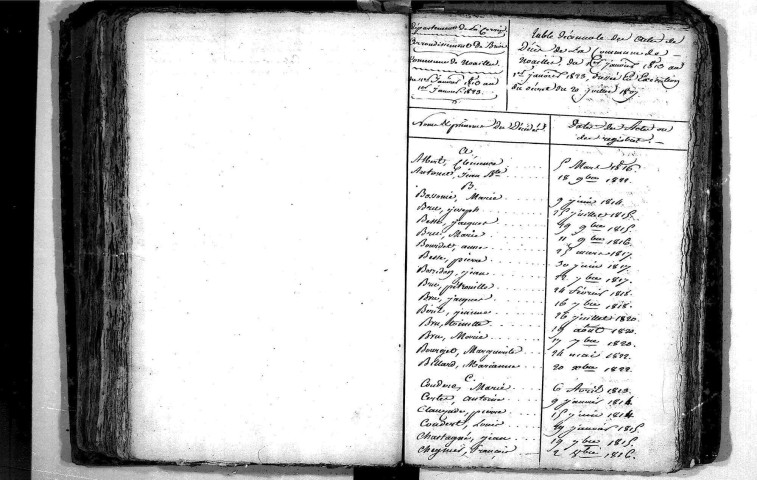 Département de la Corrèze
Arrondissement de Brive
Commune de Noailles
du 1er Janvier 1813 au
1er Janvier 1823.
Table Décennale des Actes de
Décès de La Commune de
Noailles, du 1er janvier 1813 au
1er janvier 1823, Dressée En Exécution
du décret du 20 juillet 1807.
Noms et prénoms des Décédés
Dates des Actes ou
des registres.
A.
Albert, Clémence 5 Mars 1816.
Antoine, Jean Bte 18 9bre 1822.
B.
Bossenie, Marie 9 juin 1814.
Bru, joseph 25 juillet 1815.
Besse, jacques 29 9bre 1815.
Bru, Marie 11 9bre 1816.
Bourdet, anne 25 mars 1817.
Besse, pierre 30 juin 1817.
jean 22 7bre 1817.
Bru, pétronille 24 février 1818.
Bru, jacques 16 7bre 1818.
26 juillet 1820.
Bru, 19 août 1820.
Bru, Marie 17 7bre 1820.
Bourget, Marguerite 24 mai 1822.
Billard, Marianne 20 1822.
C.
Couderc, Marie 6 Avril 1813.
Coste, antoine 9 janvier 1814.
Clauzade, pierre 15 juin 1814.
Coudert, Louis 29 janvier 1815.
Chastagné, jean 19 7bre 1815.
Cheymes, François 2 1816.